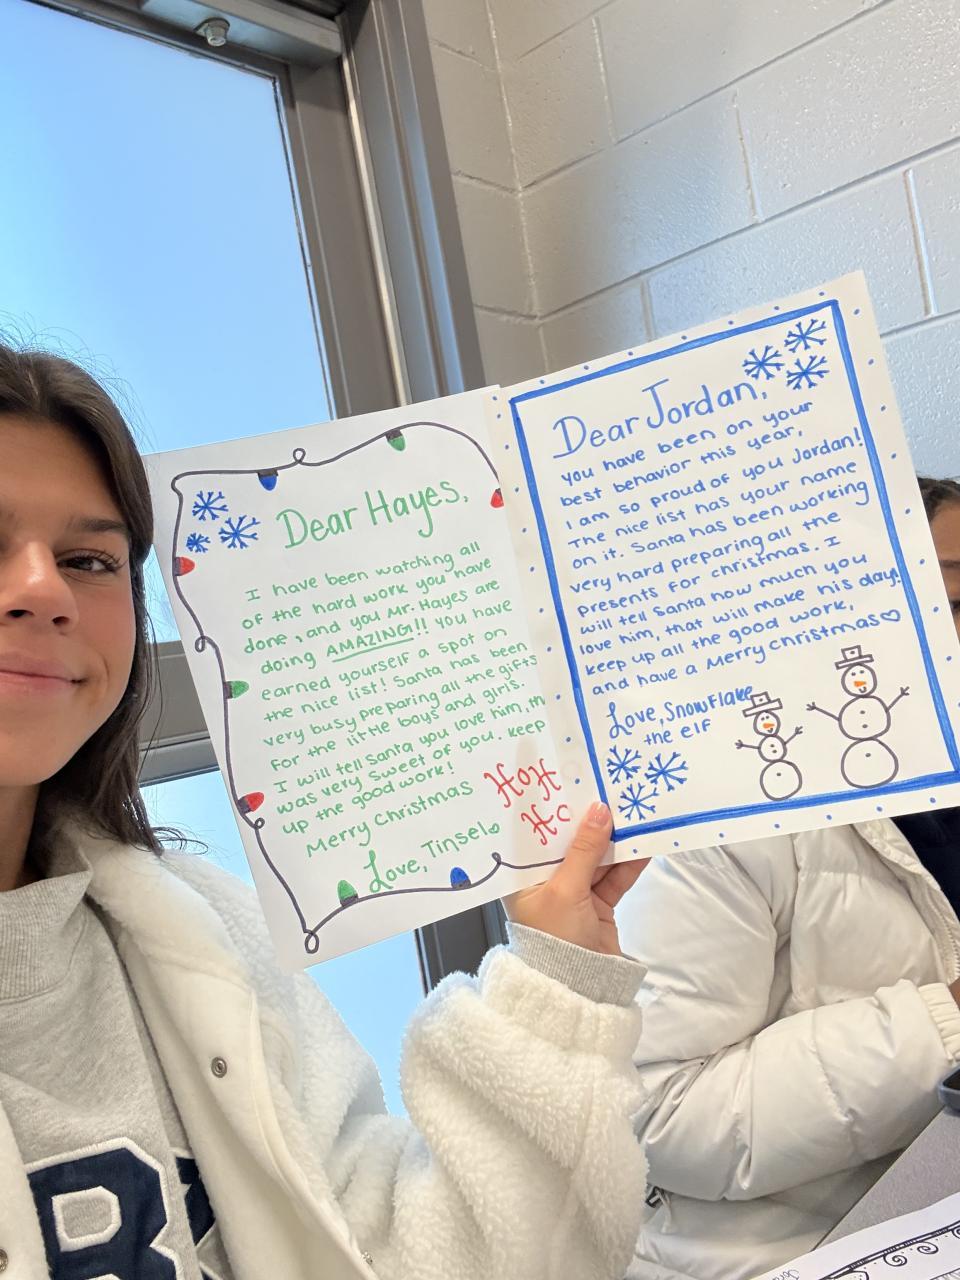 Dear Hayes,
I have been watching all
of the hard work you have
done, and you Mr. Hayes are
doing AMAZING!! You have
earned yourself a spot on
the nice list! Santa has been
very busy preparing all the gifts
for the little boys and girls.
I will tell Santa you love him, th
was very sweet of you. Keep
up the good work!
Merry Christmas
Love, Tinsel
HOH
HO
Dear Jordan,
you have been on your
best behavior this year,
I am so proud of you Jordan!
The nice list has your name
on it. Santa has been working
very hard preparing all the
presents for christmas. I
will tell Santa how much you
love him, that will make his day!
keep up all the good work,
and have a Merry Christmas♡
Love, Snowflake
the elf
B